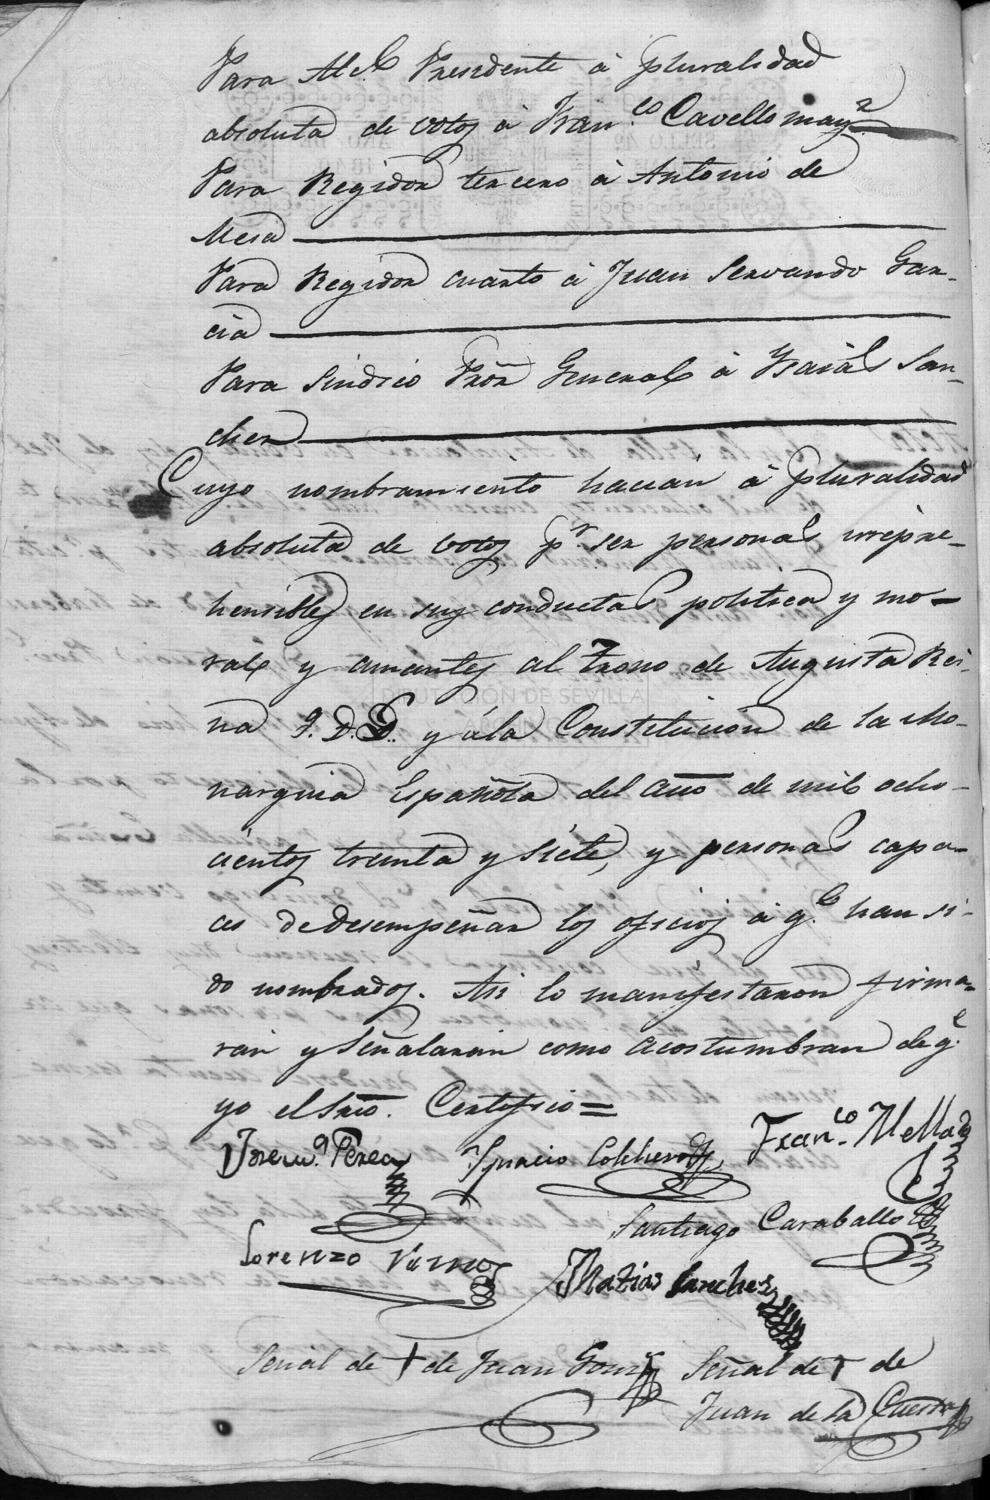 Para Alce Presidente á pluralidad
absoluta de votos á Franco Cavello mayr
Para Regidor tercero á Antonio de
Mesa
Para Regidor cuarto á Juan Servando Gar-
cia
Para Sindico Pror General á Ysaias San-
chez
Cuyo nombramiento hacian á pluralidad
absoluta de votos pr ser personas irrepre-
hensibles en sus conductas politica y mo-
ral y amantes al Trono de Augusta Rei-
na Q.D.G. y á la Constitucion de la Mo-
narquia Española del año de mil ocho-
cientos treinta y siete, y personas capa-
ces de desempeñar los oficios á qe han si-
do nombrados. Asi lo manifestaron firma-
ran y Señalaran como acostumbran de qe
yo el Srio. Certifico=
Perea Ygnacio Franco Mellado
Santiago Caraballo
Lorenzo
Matias Sanches
Señal de + de Juan Gomz Señal de + de
Juan de la Cuesta
DIPUTACIÓN DE SEVILLA